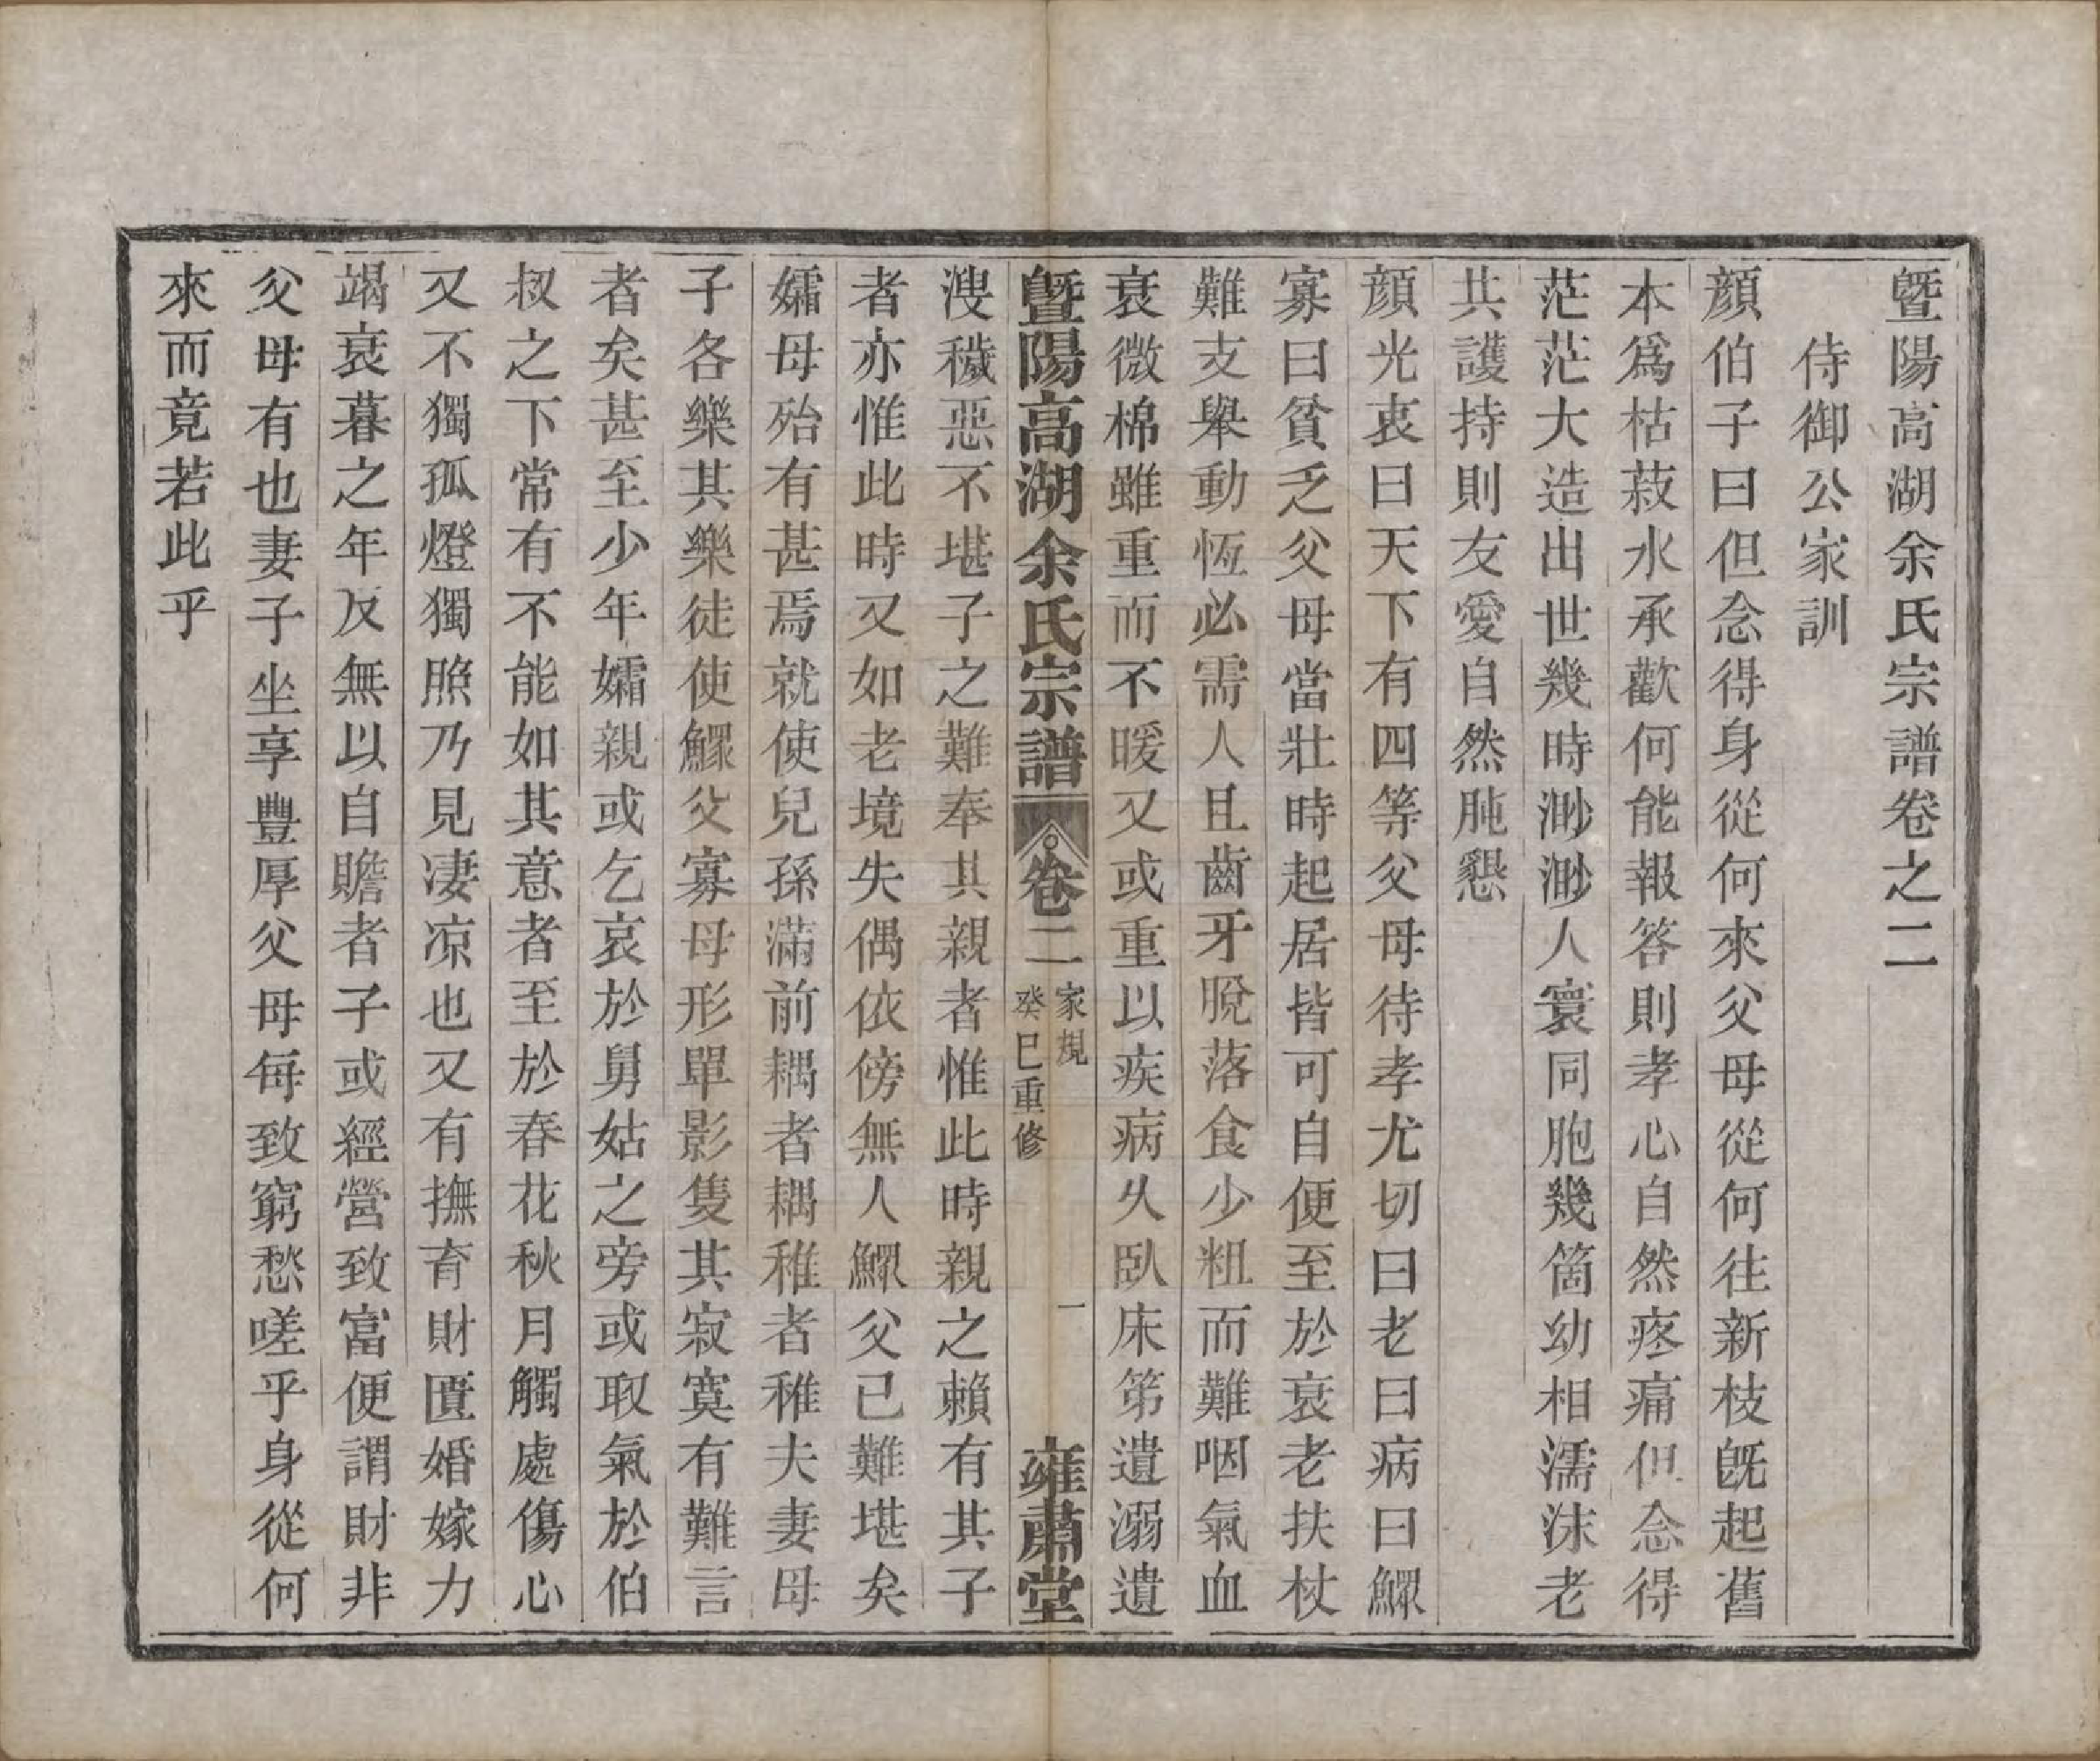 暨陽高湖余氏宗譜卷之二
侍御公家訓
顔伯子曰但念得身從何來父母從何往新枝旣起舊
本爲枯菽水承歡何能報答則孝心自然疼痛但念得
茫茫大造出世幾時渺渺人寰同胞幾箇幼相濡沫老
共護持則友愛自然肫懇
顔光衷曰天下有四等父母待孝尤切曰老曰病曰鰥
寡曰貧乏父母當壯時起居皆可自便至於衰老扶杖
難支舉動恆必需人且齒牙脫落食少粗而難咽氣血
衰微棉雖重而不暖又或重以疾病久臥床第遺溺遺
暨陽高湖余氏宗譜
卷二
家規
癸巳重修
一
雍肅堂
溲穢惡不堪子之難奉其親者惟此時親之賴有其子
者亦惟此時又如老境失偶依傍無人鰥父已難堪矣
孀母殆有甚焉就使兒孫滿前耦者耦稚者稚夫妻母
子各樂其樂徒使鰥父寡母形單影隻其寂寞有難言
者矣甚至少年孀親或乞哀於舅姑之旁或取氣於伯
叔之下常有不能如其意者至於春花秋月觸處傷心
又不獨孤燈獨照乃見凄凉也又有撫育財匱婚嫁力
竭衰暮之年反無以自贍者子或經營致富便謂財非
父母有也妻子坐享豐厚父母每致窮愁嗟乎身從何
來而竟若此乎